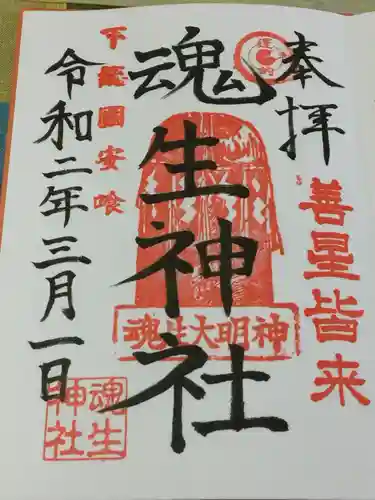 奉拝
善星皆来
魂生神社
魂生大明神
魂生
神社
下籠園安喰
令和二年三月一日